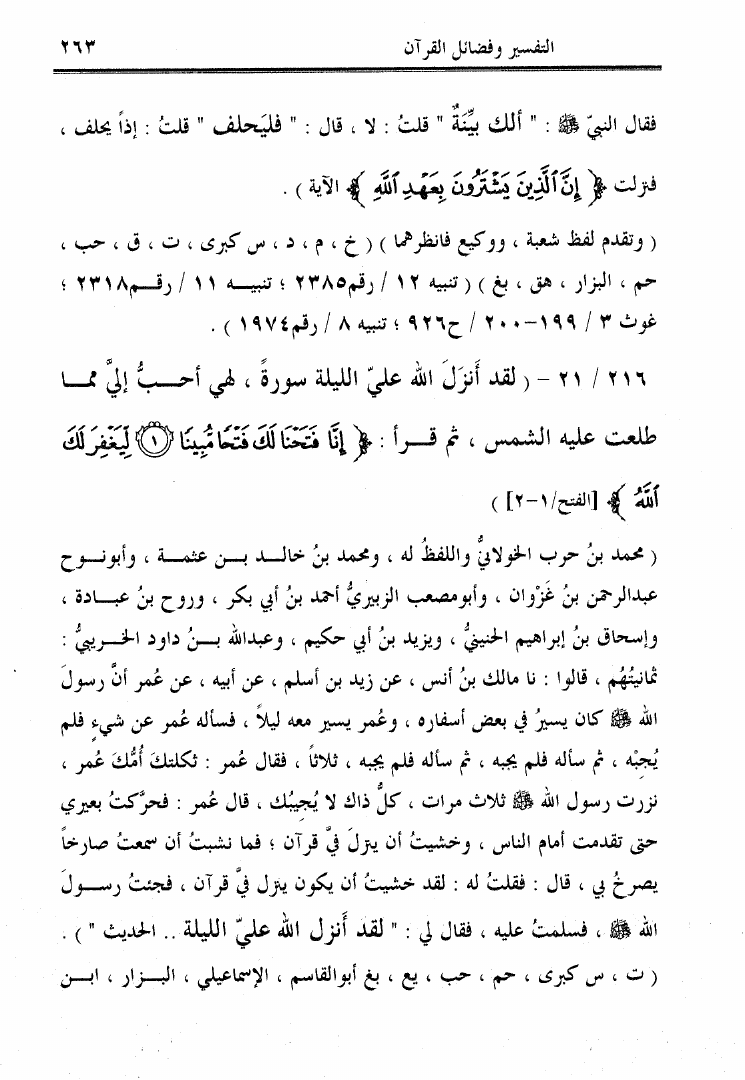 التفسير وفضائل القرآن ٢٦٣
فقال النبيّ ﷺ : " ألك بيِّنَةٌ " قلتُ : لا ، قال : " فليَحلف " قلتُ : إذاً يحلف ،
فنزلت ﴿ إِنَّ ٱلَّذِينَ يَشْتَرُونَ بِعَهْدِ ٱللَّهِ ﴾ الآية ) .
( وتقدم لفظ شعبة ، ووكيع فانظرهما ) ( خ ، م ، د ، س كبرى ، ت ، ق ، حب ،
حم ، البزار ، هق ، بغ ) ( تنبيه ١٢ / رقم٢٣٨٥ ؛ تنبيـــه ١١ / رقـــم٢٣١٨ ؛
غوث ٣ / ١٩٩-٢٠٠ / ح٩٢٦ ؛ تنبيه ٨ / رقم١٩٧٤ ) .
٢١٦ / ٢١ - ( لقد أَنزَلَ الله عليّ الليلة سورةً ، لهي أحـــبُّ إليَّ ممـــا
طلعت عليه الشمس ، ثم قـــرأ : ﴿ إِنَّا فَتَحْنَا لَكَ فَتْحًا مُّبِينًا ۝١ لِّيَغْفِرَ لَكَ
ٱللَّهُ ﴾ [الفتح/١-٢] )
( محمد بنُ حرب الخولانيُّ واللفظُ له ، ومحمد بنُ خالـــد بـــن عثمـــة ، وأبونـــوح
عبدالرحمن بنُ غَزْوان ، وأبومصعب الزبيريُّ أحمد بنُ أبي بكر ، وروح بنُ عبـــادة ،
وإسحاق بنُ إبراهيم الحنينيُّ ، ويزيد بنُ أبي حكيم ، وعبدالله بـــنُ داود الخـــريبيُّ :
ثمانيتُهُم ، قالوا : نا مالك بنُ أنس ، عن زيد بن أسلم ، عن أبيه ، عن عُمر أنَّ رسولَ
الله ﷺ كان يسيرُ في بعض أسفاره ، وعُمر يسير معه ليلاً ، فسأله عُمر عن شيءٍ فلم
يُجبْه ، ثم سأله فلم يجبه ، ثم سأله فلم يجبه ، ثلاثاً ، فقال عُمر : ثكلتكَ أُمُّكَ عُمر ،
نزرت رسول الله ﷺ ثلاث مرات ، كلُّ ذاك لا يُجيبُك ، قال عُمر : فحرَّكتُ بعيري
حتى تقدمت أمام الناس ، وخشيتُ أن ينزلَ فيَّ قرآن ؛ فما نشبتُ أن سمعتُ صارخاً
يصرخُ بي ، قال : فقلتُ له : لقد خشيتُ أن يكون ينزل فيَّ قرآن ، فجئتُ رســـولَ
الله ﷺ ، فسلمتُ عليه ، فقال لي : " لقد أنزل الله عليّ الليلة .. الحديث " ) .
( ت ، س كبرى ، حم ، حب ، يع ، بغ أبوالقاسم ، الإسماعيلي ، البـــزار ، ابـــن